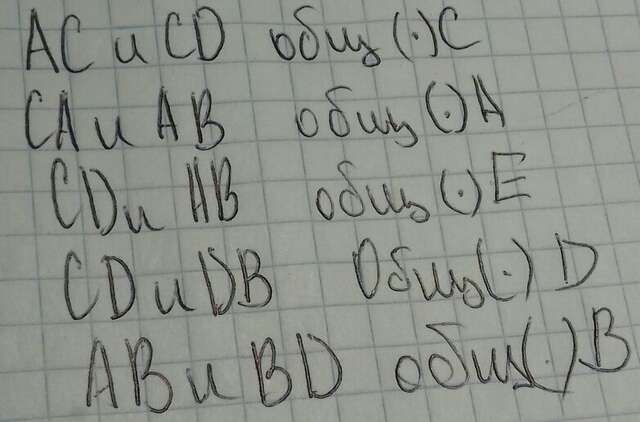 AC и CD общ (·) C
CA и AB общ (·) A
CD и AB общ (·) E
CD и DB Общ (·) D
AB и BD общ (·) B